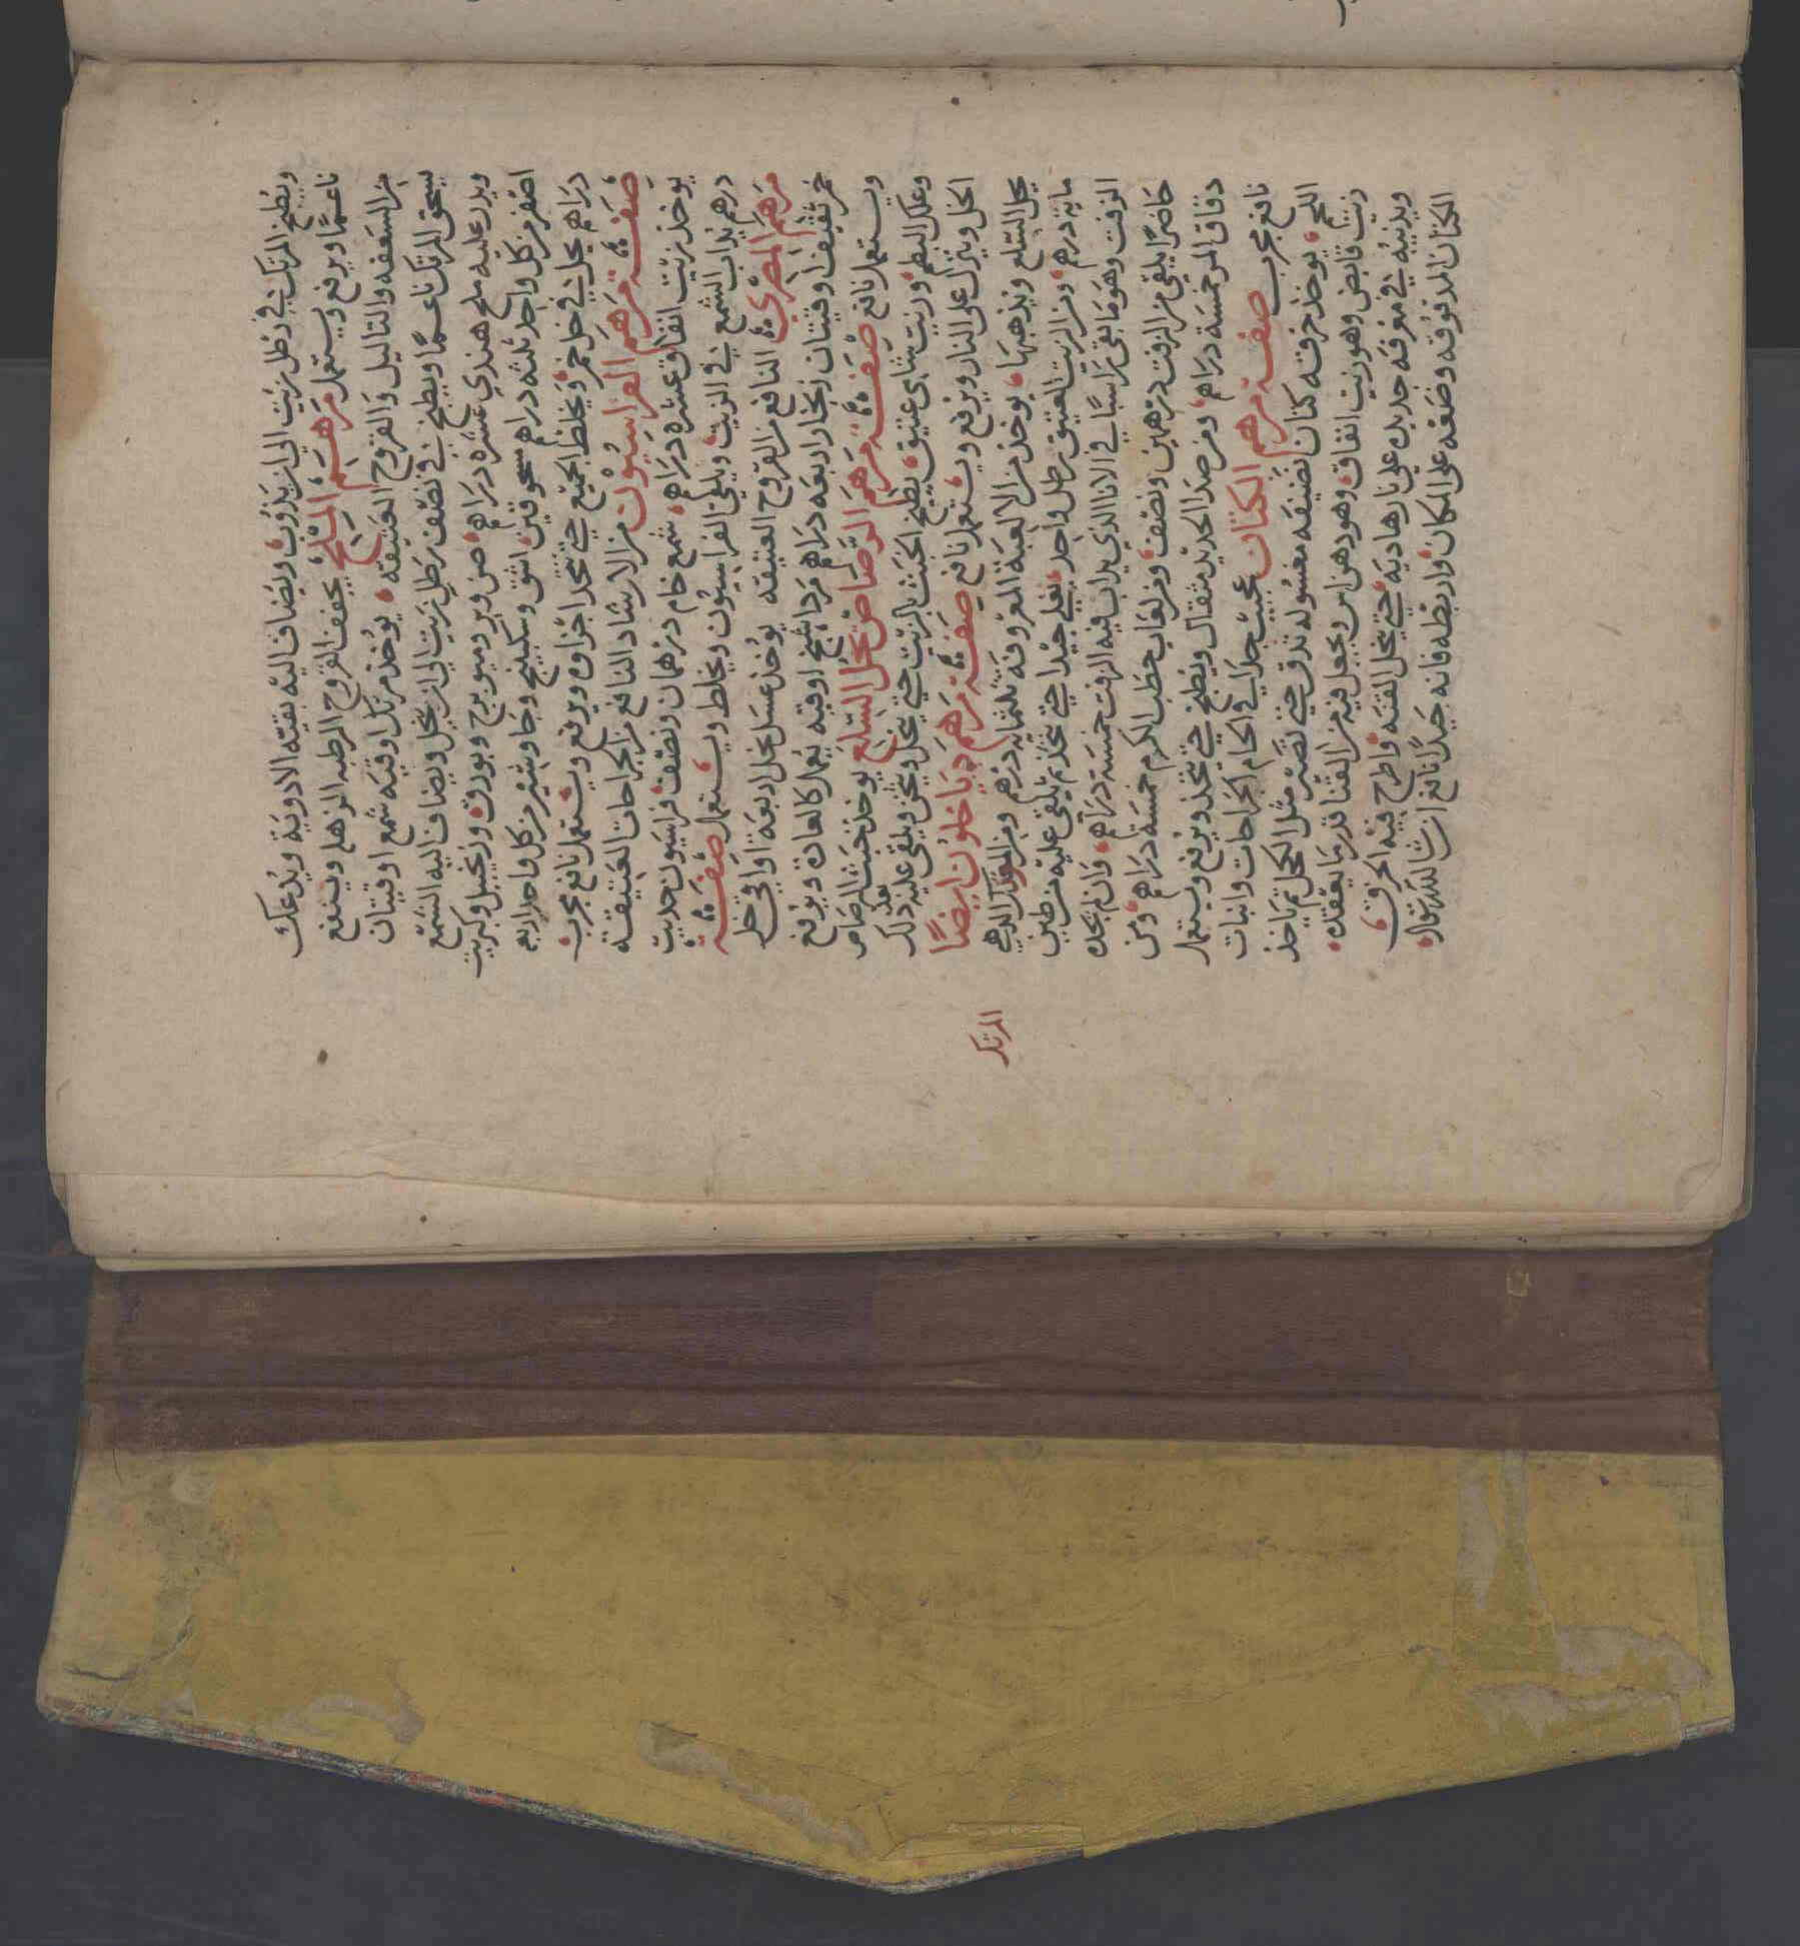 ويطبخ المرتك في رطل زيت الي ان يذوب ويضاف اليه بقيه الادوية ويدعك
ناعمًا ويرفع ويستعمل مرهم الملح يجفف القروح الرطبه الرهله وينفع
من السعفه والتاليل والقروح العتيقه يوخذ مرتك اوقيه شمع اوقيتان
يسحق المرتك ناعمًا ويطبخ في نصف رطل زيت الي ان ينحل ويضاف اليه الشمع
ويدر عليه ملح هندي عشرة دراهم صبر وبورق وزنجبيل وكبريت
اصفر من كل واحد ثلثه دراهم مسحوقين اشق وسكبينج وجاوشير من كل واحد اربعه
دراهم يحل في خل خمر ويخلط الجميع حتي تتحد اجزاوه ويرفع ويستعمل نافع مجرب
صفة مرهم الفراسيون من الارشاد النافع من الجراحات العتيقة
يوخذ زيت انفاق عشره دراهم شمع خام درهمان ونصف فراسيون حديث
درهم يذاب الشمع في الزيت ويلقي الفراسيون ويخلط ويستعمل صفة
مرهم المصري النافع من القروح العتيقه يوخذ عسل نحل اربعة اواقي خل
خمر ثقيف اوقيتان زنجار اربعه دراهم مرداسنج اوقيه يعمل كالعادة ويرفع
ويستعمل نافع صفة مرهم الرصاص يحل السلع يوخذ خبث الرصاص
وعلك البطم وزيت شامي عتيق يطبخ الخبث بالزيت حتي ينحل ويثخن ويلقي عليه بعد ذلك
الخل وينزل على النار ويرفع ويستعمل نافع صفة مرهم دياخلون ايضًا
يحل السلع ويذهبها يوخذ من الالعبة المعروفه ثلثمايه درهم ومن المرتك الذهبي
مايه درهم ومن الزيت العتيق رطل واحد يغلي جيدا حتي تخذ ثم يلقي عليه
الزفت وهو ما بقي راسبا في الانا الذي يداب فيه الزفت خمسة دراهم وان لم تجده
حاضرًا يلقي من الزفت درهمين ونصف ومن لعاب حطب الكرم خمسة دراهم ومن
دقاق المر خمسة دراهم ومن صدا الحديد مثقال ويطبخ حتي تتخذ ويرفع ويستعمل
نافع مجرب صفة مرهم الكتان عجيب جدا في الحام الجراحات وانبات
اللحم يوخذ خرقه كتان نضيفه مغسوله تدق حتي تصير مثل الكحل ثم ياخذ
زيت قابض وهو زيت انفاق وهو دهن اس ويجعل فيه من القنا قدر ما يعقده
ويذيبه في مغرفه جديد علي نار هاديه حتي ينحل القنه واطرح فيه الخرق
الكتان المدقوقه وضعه علي المكان واربطه فانه جيدًا نافع ان شا الله تعالى
المرتك